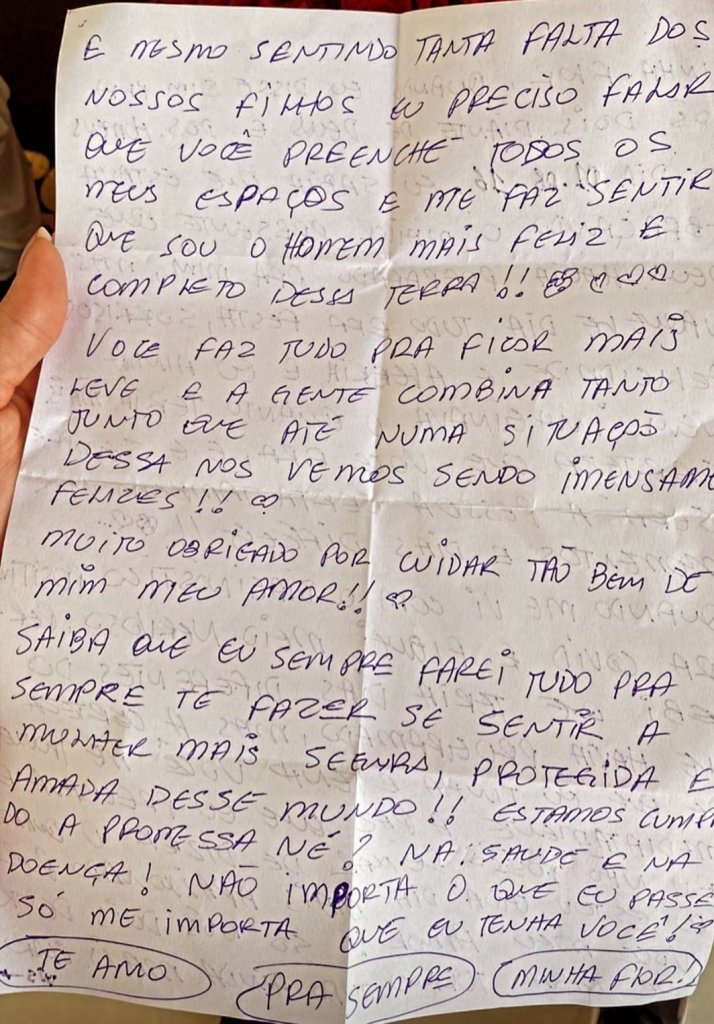 E MESMO SENTINDO TANTA FALTA DOS
NOSSOS FILHOS EU PRECISO FALAR
QUE VOCÊ PREENCHE TODOS OS
MEUS ESPAÇOS E ME FAZ SENTIR
QUE SOU O HOMEM MAIS FELIZ E
COMPLETO DESSA TERRA!! ♡♡♡♡
VOCE FAZ TUDO PRA FICAR MAIS
LEVE E A GENTE COMBINA TANTO
JUNTO QUE ATÉ NUMA SITUAÇÃO
DESSA NOS VEMOS SENDO IMENSAME
FELIZES!! ♡
MUITO OBRIGADO POR CUIDAR TÃO BEM DE
MIM MEU AMOR!! ♡
SAIBA QUE EU SEMPRE FAREI TUDO PRA
SEMPRE TE FAZER SE SENTIR A
MULHER MAIS SEGURA, PROTEGIDA E
AMADA DESSE MUNDO!! ESTAMOS CUMPRI
DO A PROMESSA NÉ? NA SAUDE E NA
DOENÇA! NÃO IMPORTA O QUE EU PASSE
SÓ ME IMPORTA QUE EU TENHA VOCÊ! ♡
TE AMO PRA SEMPRE MINHA FLOR!